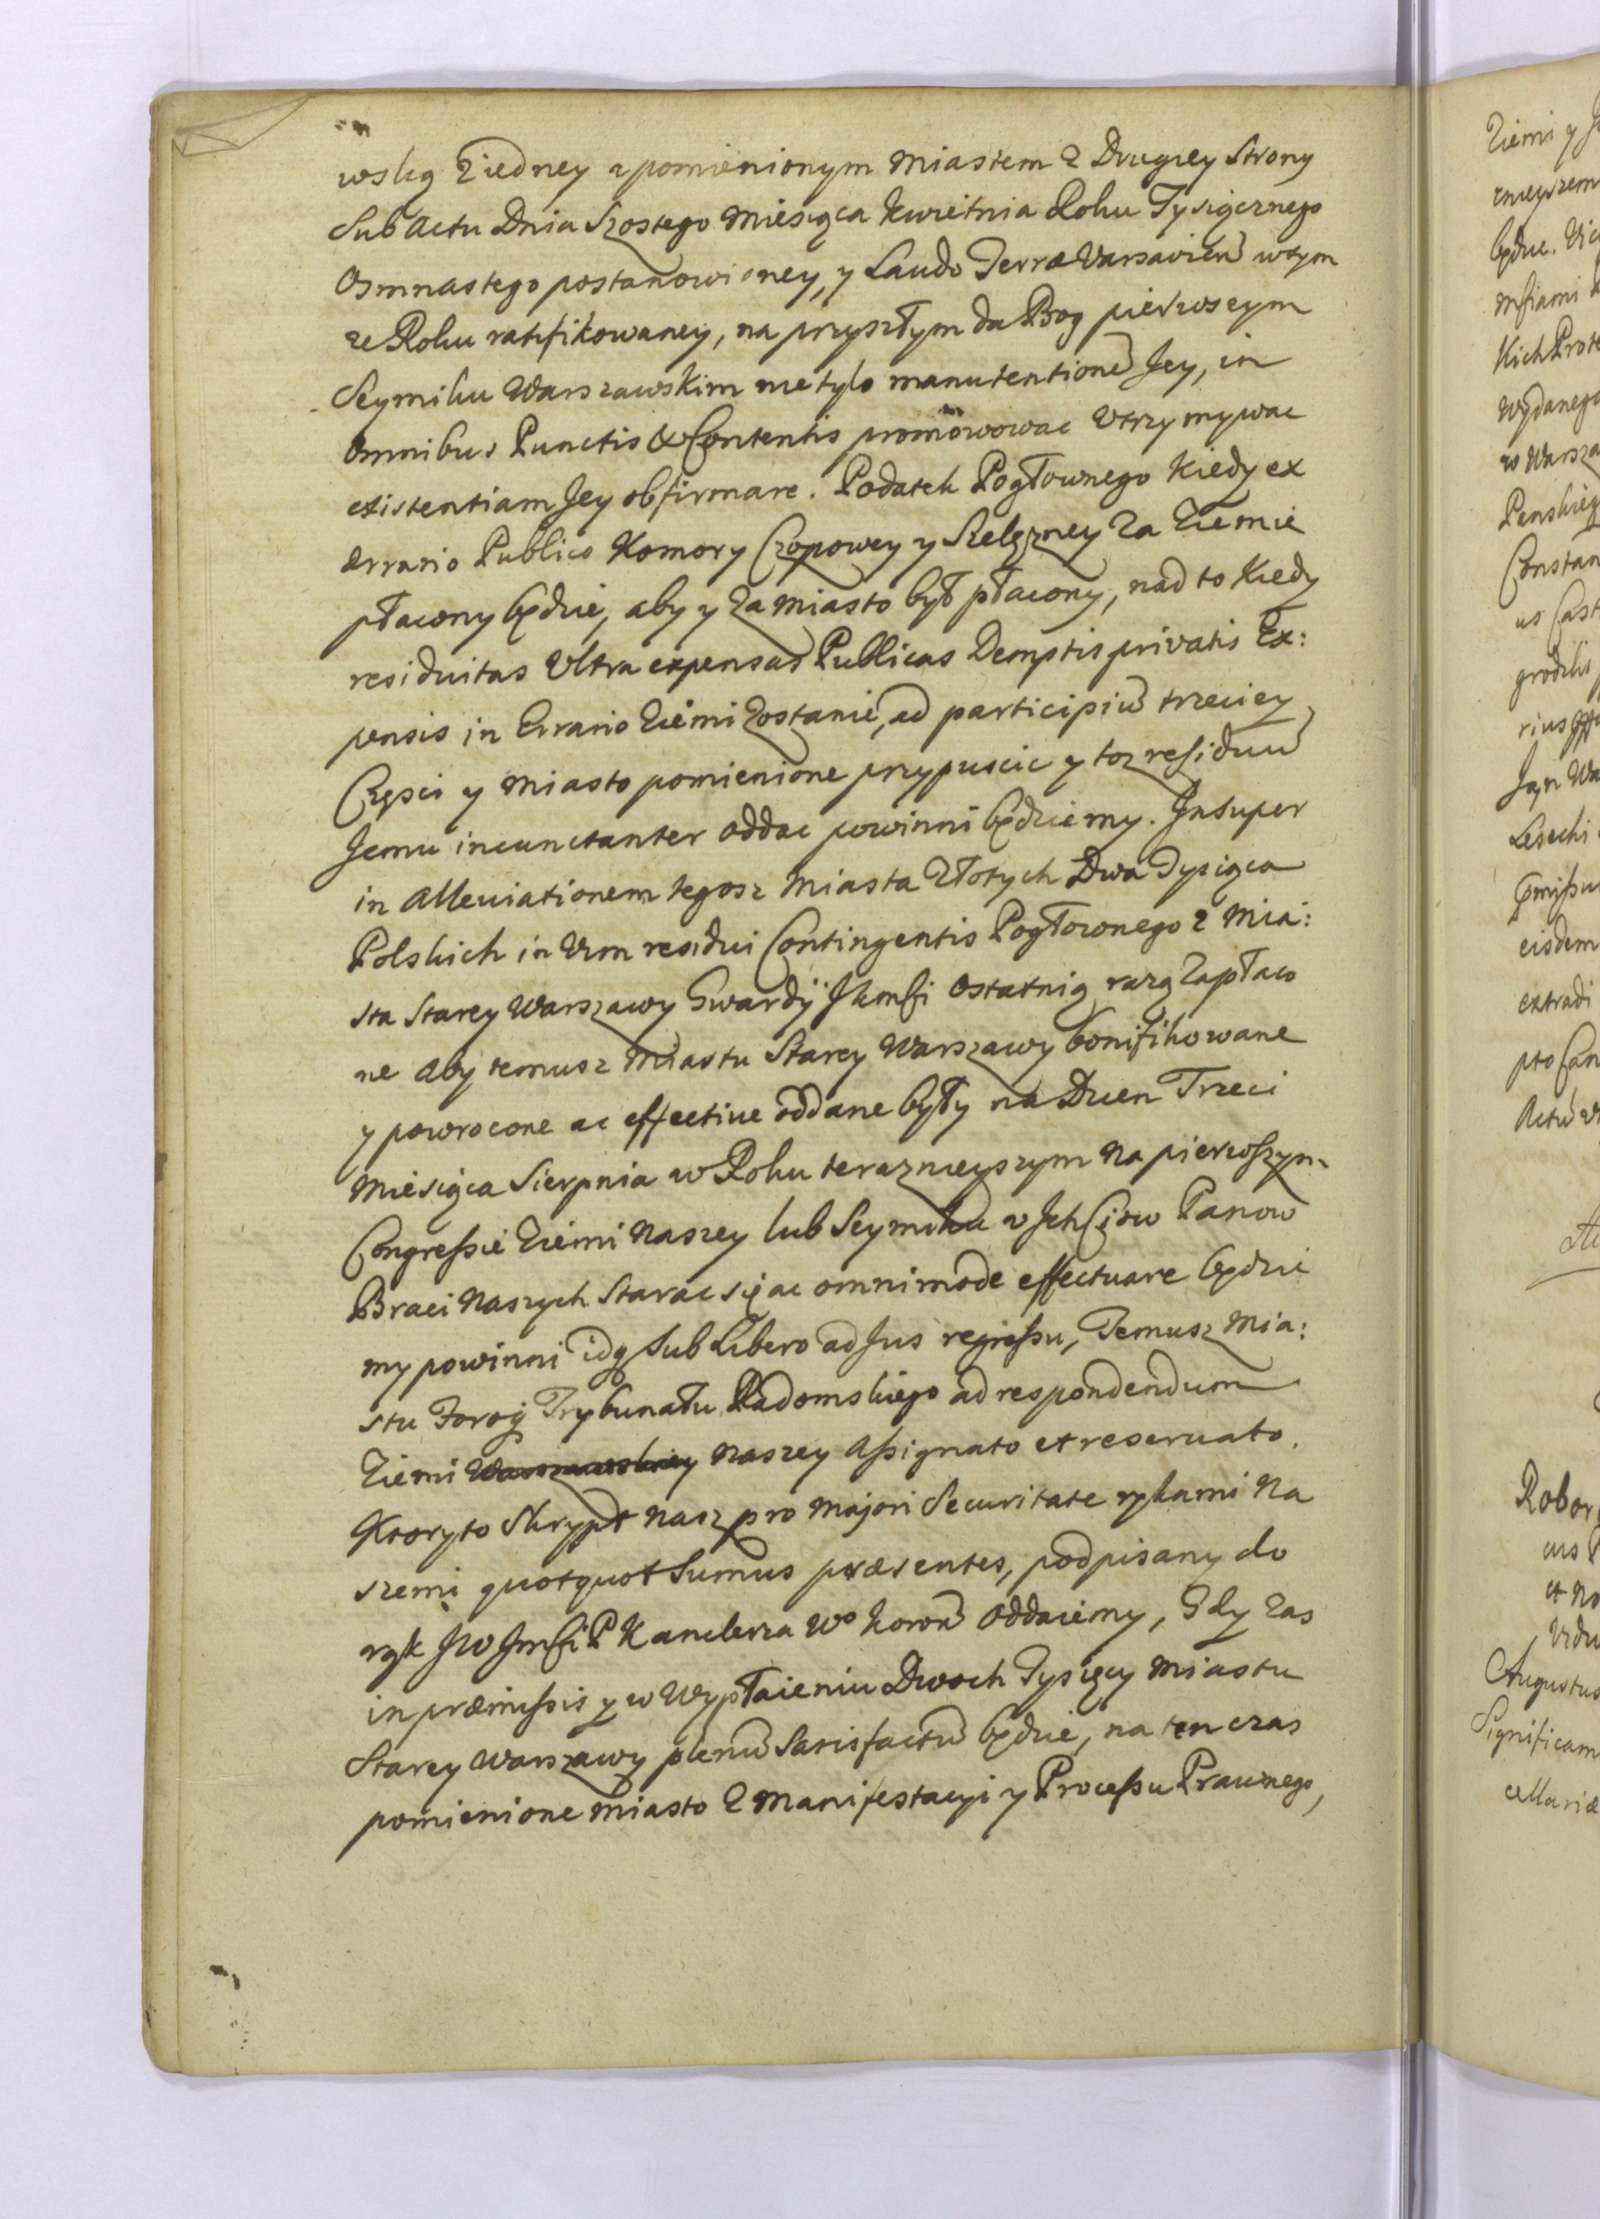 wską ziedney a pomienionym Miastem z Drugiey Strony
Sub Actu Dnia Szostego Miesiąca Kwietnia Roku Tysiącznego
Osmnastego postanowioney, y Laudo Terræ Varsavien̄ wtym
ze Roku ratifikowaney, na przyszłym da Bog pierwszym
Seymiku Warszawskim nie tylo manutentionē Jey, in
Omnibus Punctis & Contentis promowowac Vtrzymywac
existentiam Jey obfirmare. Podatek Pogłownego kiedy ex
Ærrario Publico Komory Czopowey y Szelęzney Za Ziemie
płacony będzie, aby y Za Miasto był płacony, nad to kiedy
residuitas Vltra expensas Publicas Demptis privatis Ex:
pensis in Errario Ziemi Zostanie, ad participiū trzeciey
Części y Miasto pomienione przypuscic y toz residuū
Jemu incunctanter oddac powinni będziemy. Insuper
in Alleviationem tegosz Miasta Złotych Dwa Tysiąca
Polskich in Vim residui Contingentis Pogłownego z Mia:
sta Starey Warszawy Gwardÿ JKmsći Ostatnią razą Zapłaco
ne Aby temusz Miastu Starey Warszawy bonifikowane
y powrocone ac effective oddane były na Dzien Trzeci
Miesiąca Sierpnia w Roku terazneyszym Na pierwszym
Congressie Ziemi Naszey lub Seymiku v Jch Cjow Panow
Braci Naszych Starac się ac omnimode effectuare będzie
my powinni idą Sub Libero ad Jus regressu, Temusz Mia:
stu Foroq̃ Trybunału Radomskiego ad respondendum
Ziemi Warszawskiey Naszey Assignato et reservato.
Ktoryto Skrypt Nasz pro Majori Securitate rękami Na
szemi quotquot Sumus præsentes, podpisany do
rąk JW Jmści P Kanclerza Wo Koron̄ Oddaiemy, Gdy Zas
in præmissis y w Wypłaieniu Dwoch Tysięcy Miastu
Starey Warszawy plenū Satisfactū będzie, na ten czas
pomienione Miasto z Manifestacyi y Processu Prawnego,